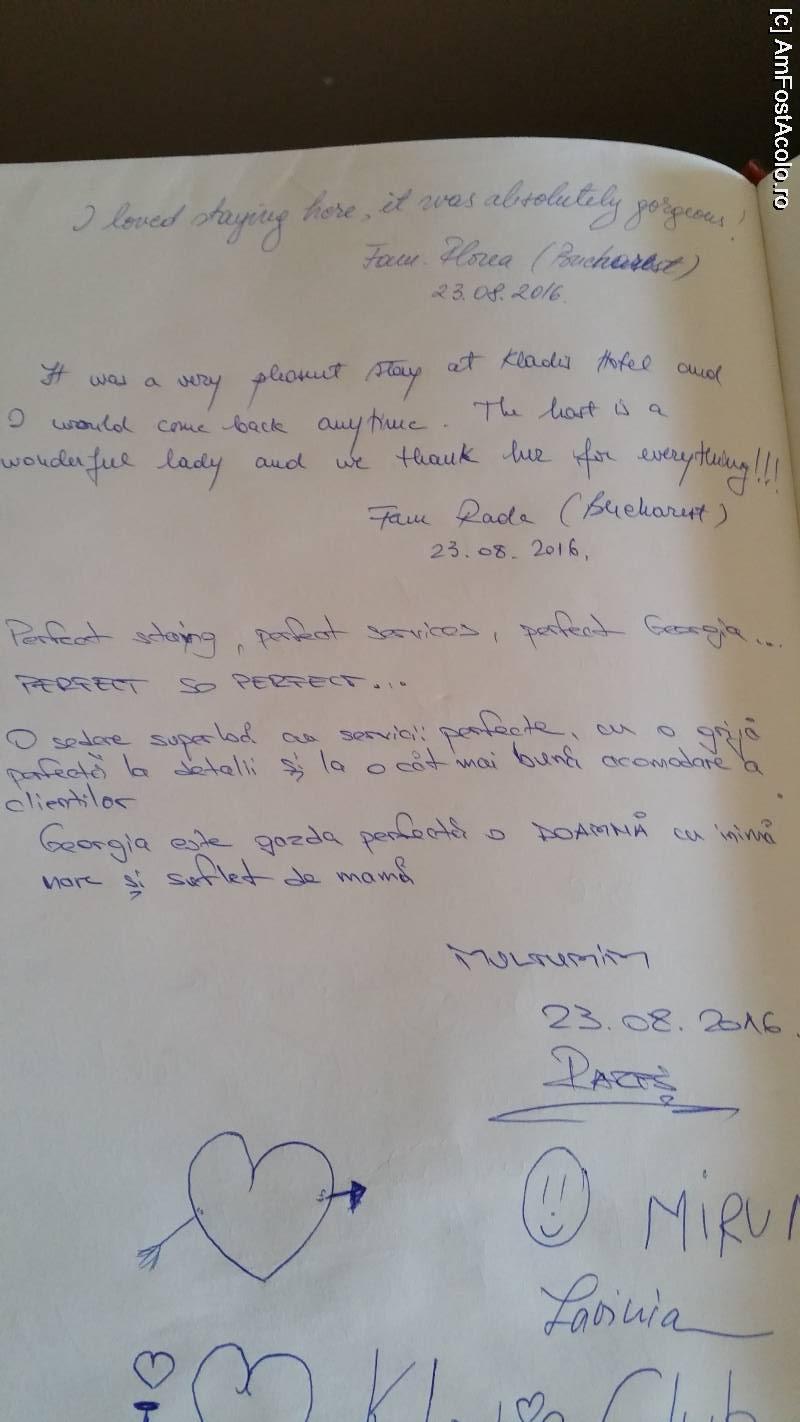 [c] AmFostAcolo.ro
I loved staying here, it was absolutely gorgeous!
Fam. Florea (Bucharest)
23.08.2016.
It was a very pleasant stay at Kladis Hotel and
I would come back anytime. The host is a
wonderful lady and we thank her for everything!!!
Fam Rada (Bucharest)
23.08. 2016.
Perfect staying, perfect services, perfect Georgia...
PERFECT SO PERFECT...
O sedere superbă cu servicii perfecte, cu o grijă
perfectă la detalii și la o cât mai bună acomodare a
clientilor.
Georgia este gazda perfectă o DOAMNĂ cu inimă
mare și suflet de mamă
MULTUMIM
23.08.2016.
MIRUN
Lavinia
I
Club